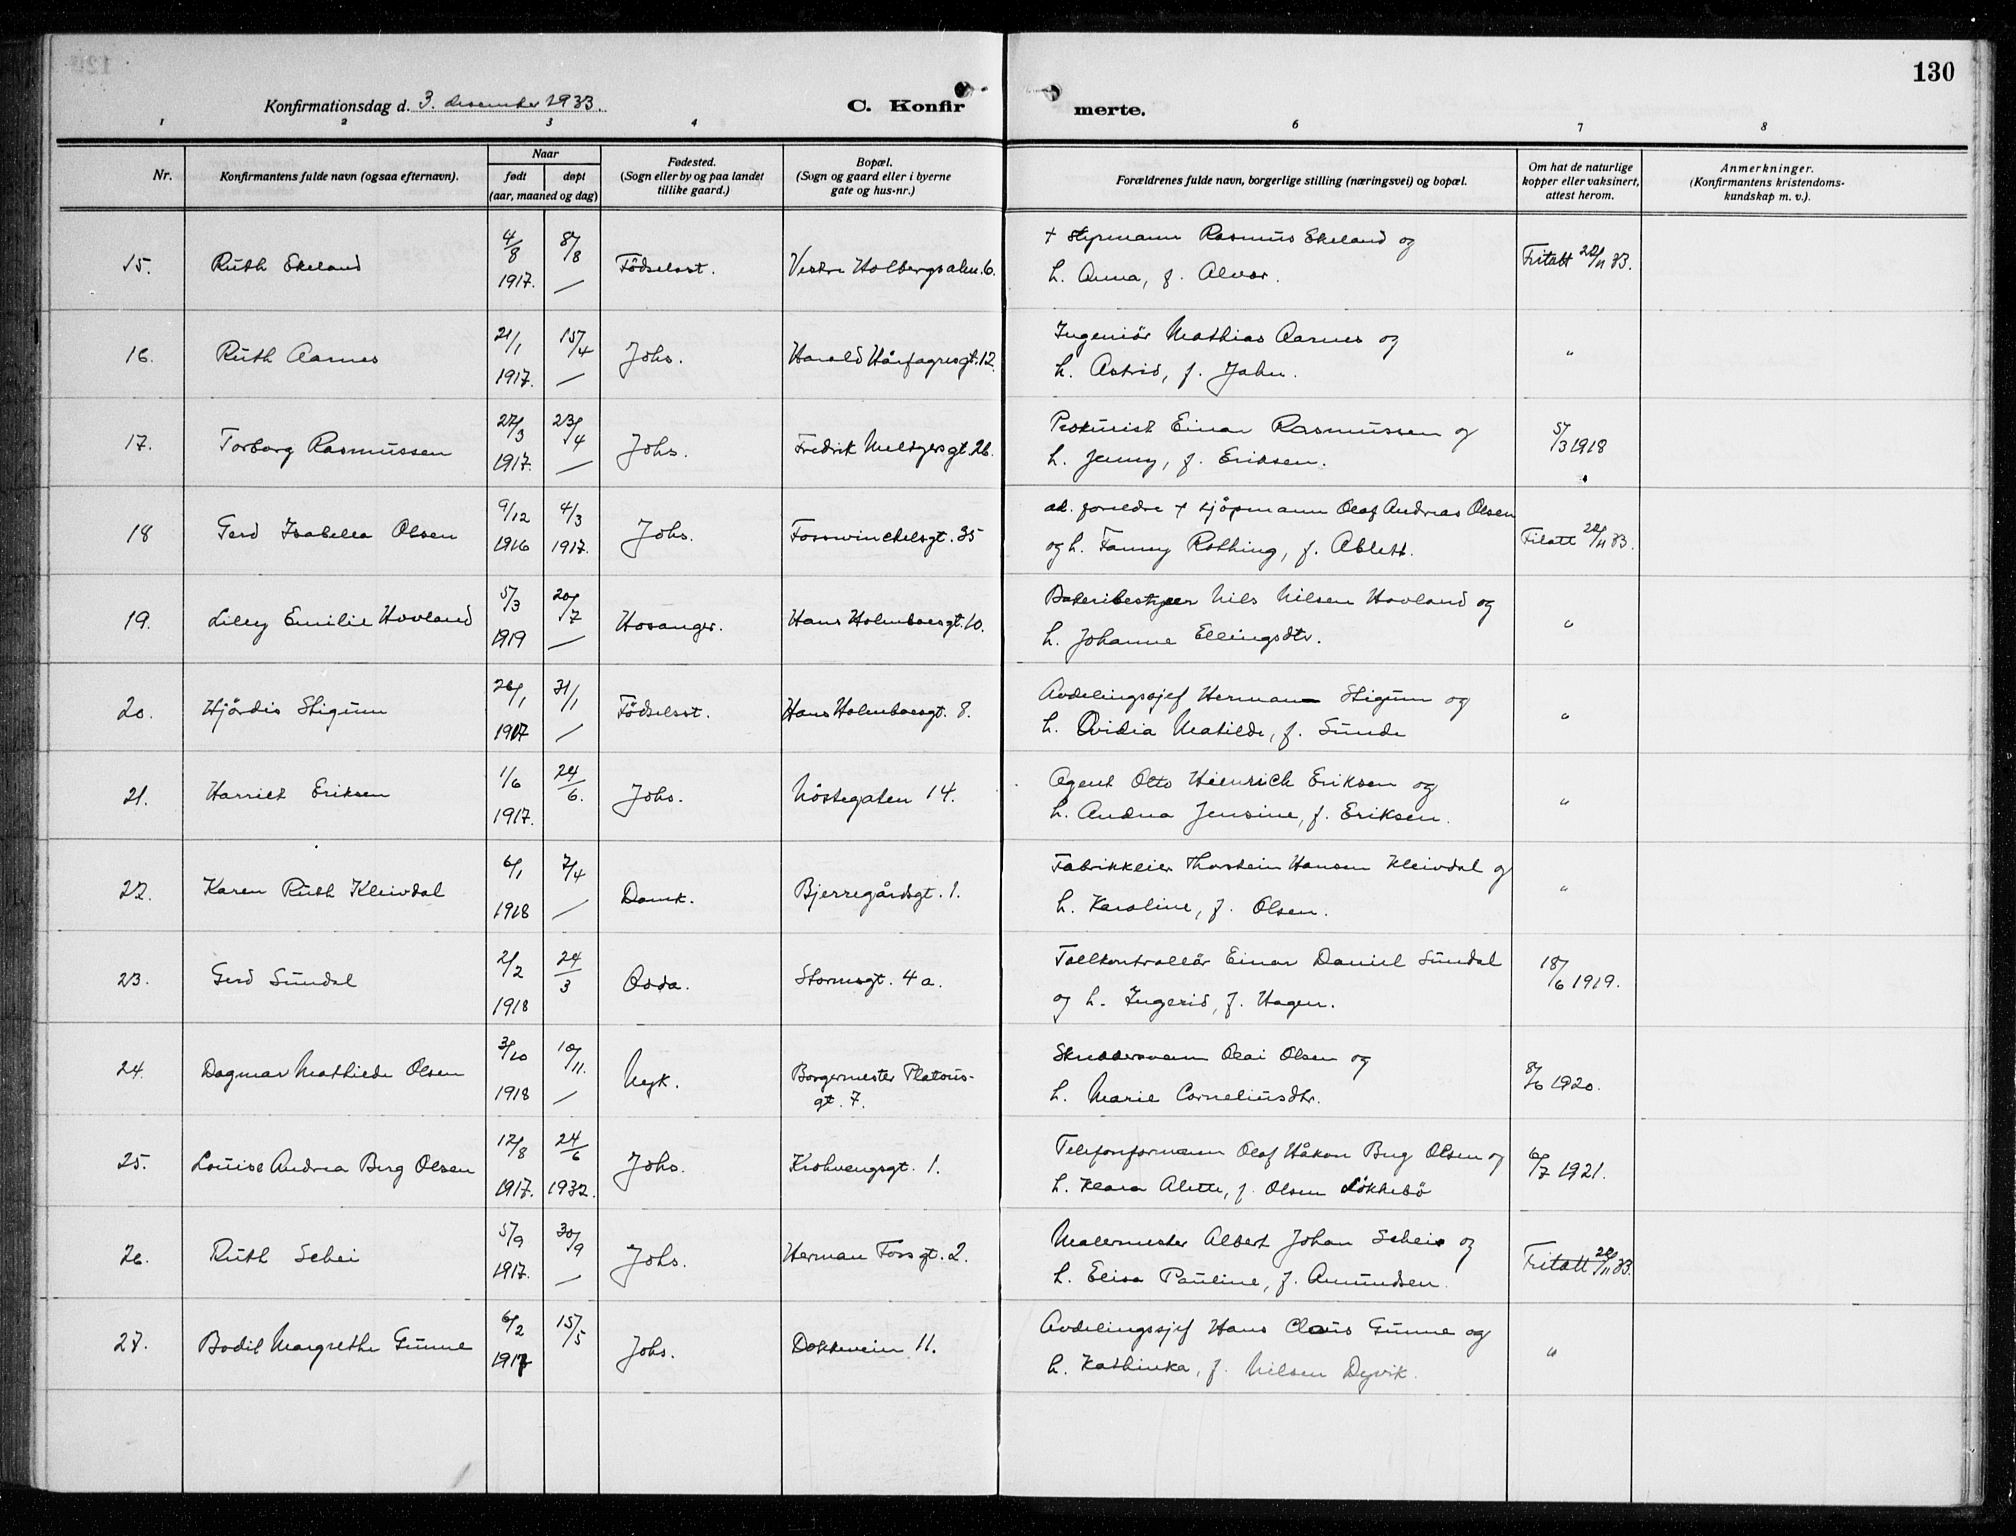 130
Konfirmationsdag d. 3. desember 1933.
C. Konfir
merte.
1 2 3 4 6 7 8
Nr.
Konfirmantens fulde navn (ogsaa efternavn).
Naar
født
døpt
(aar, maaned og dag)
Fødested.
(Sogn eller by og paa landet
tillike gaard.)
Bopæl.
(Sogn og gaard eller i byerne
gate og hus-nr.)
Forældrenes fulde navn, borgerlige stilling (næringsvei) og bopæl.
Om hat de naturlige
kopper eller vaksinert,
attest herom.
Anmerkninger.
(Konfirmantens kristendoms-
kundskap m. v.).
15. Ruth Ekeland 4/8 1917. 8/8 — Födselsst. Vestre Holbergsalm. 6. + Styrmann Rasmus Ekeland og
h. Anna, f. Alver. Fritatt 22/11 33.
16. Ruth Aarnes 21/1 1917. 15/4 — Johs. Harald Hårfagresgt. 12. Ingeniör Mathias Aarnes og
h. Astrid, f. Jahn. "
17. Torborg Rasmussen 27/3 1917. 23/4 — Johs. Fredrik Meltzersgt. 26. Prokurist Einar Rasmussen og
h. Jenny, f. Eriksen. 5/3 1918
18 Gerd Isabella Olsen 9/12 1916 4/3 1917. Johs. Fosswinckelsgt. 35 ad. foreldre + skjöpmann Olaf Andreas Olsen
og h. Fanny Rothing, f. Ablett. Fritatt 22/11 33.
19. Lilly Emilie Hovland 5/3 1919 20/7 — Hosanger. Hans Holmboesgt. 10. Bakeribestyrer Nils Nilsen Hovland og
h. Johanne Ellingsdtr. "
20. Hjördis Stigum 26/1 1917 31/1 — Födselsst. Hans Holmboesgt. 8. Avdelingssjef Herman Stigum og
h. Ovidia Matilde, f. Sunde "
21. Harriet Eriksen 1/6 1917. 24/6. Johs. Nöstegaten 14. Agent Otto Heinrich Eriksen og
h. Andrea Jensine, f. Eriksen. "
22. Karen Ruth Kleivdal 6/1 1918 7/4 — Domk. Bjerregårdsgt. 1. Fabrikkeier Thorstein Hansen Kleivdal og
h. Karoline, f. Olsen. "
23. Gerd Sundal 2/2 1918 24/3 Odda. Stormsgt. 4a. Tollkontrollör Einar Daniel Sundal
og h. Ingerid, f. Hagen. 18/6 1919.
24. Dagmar Mathilde Olsen 3/10 1918 10/11. — Nyk. Borgermester Platous-
gt. 7. Skreddersvenn Olai Olsen og
h. Marie Corneliusdtr. 8/6 1920.
25. Louise Andrea Berg Olsen 12/8 1917. 24/6 1932. Johs. Krohnengsgt. 1. Telefonformann Olaf Håkon Berg Olsen og
h. Klara Alette, f. Olsen Lökkebö 6/7 1921.
26. Ruth Schei 5/9 1917. 30/9 — Johs. Herman Fossgt. 2. Malermester Albert Johan Schei og
h. Elisa Pauline, f. Amundsen. Fritatt 22/11 33.
27. Bodil Margrethe Gunne 6/2 1917 15/5 Johs. Dokkeveien 11. Avdelingssjef Hans Claus Gunne og
h. Kathinka, f. Nilsen Dyvik. "